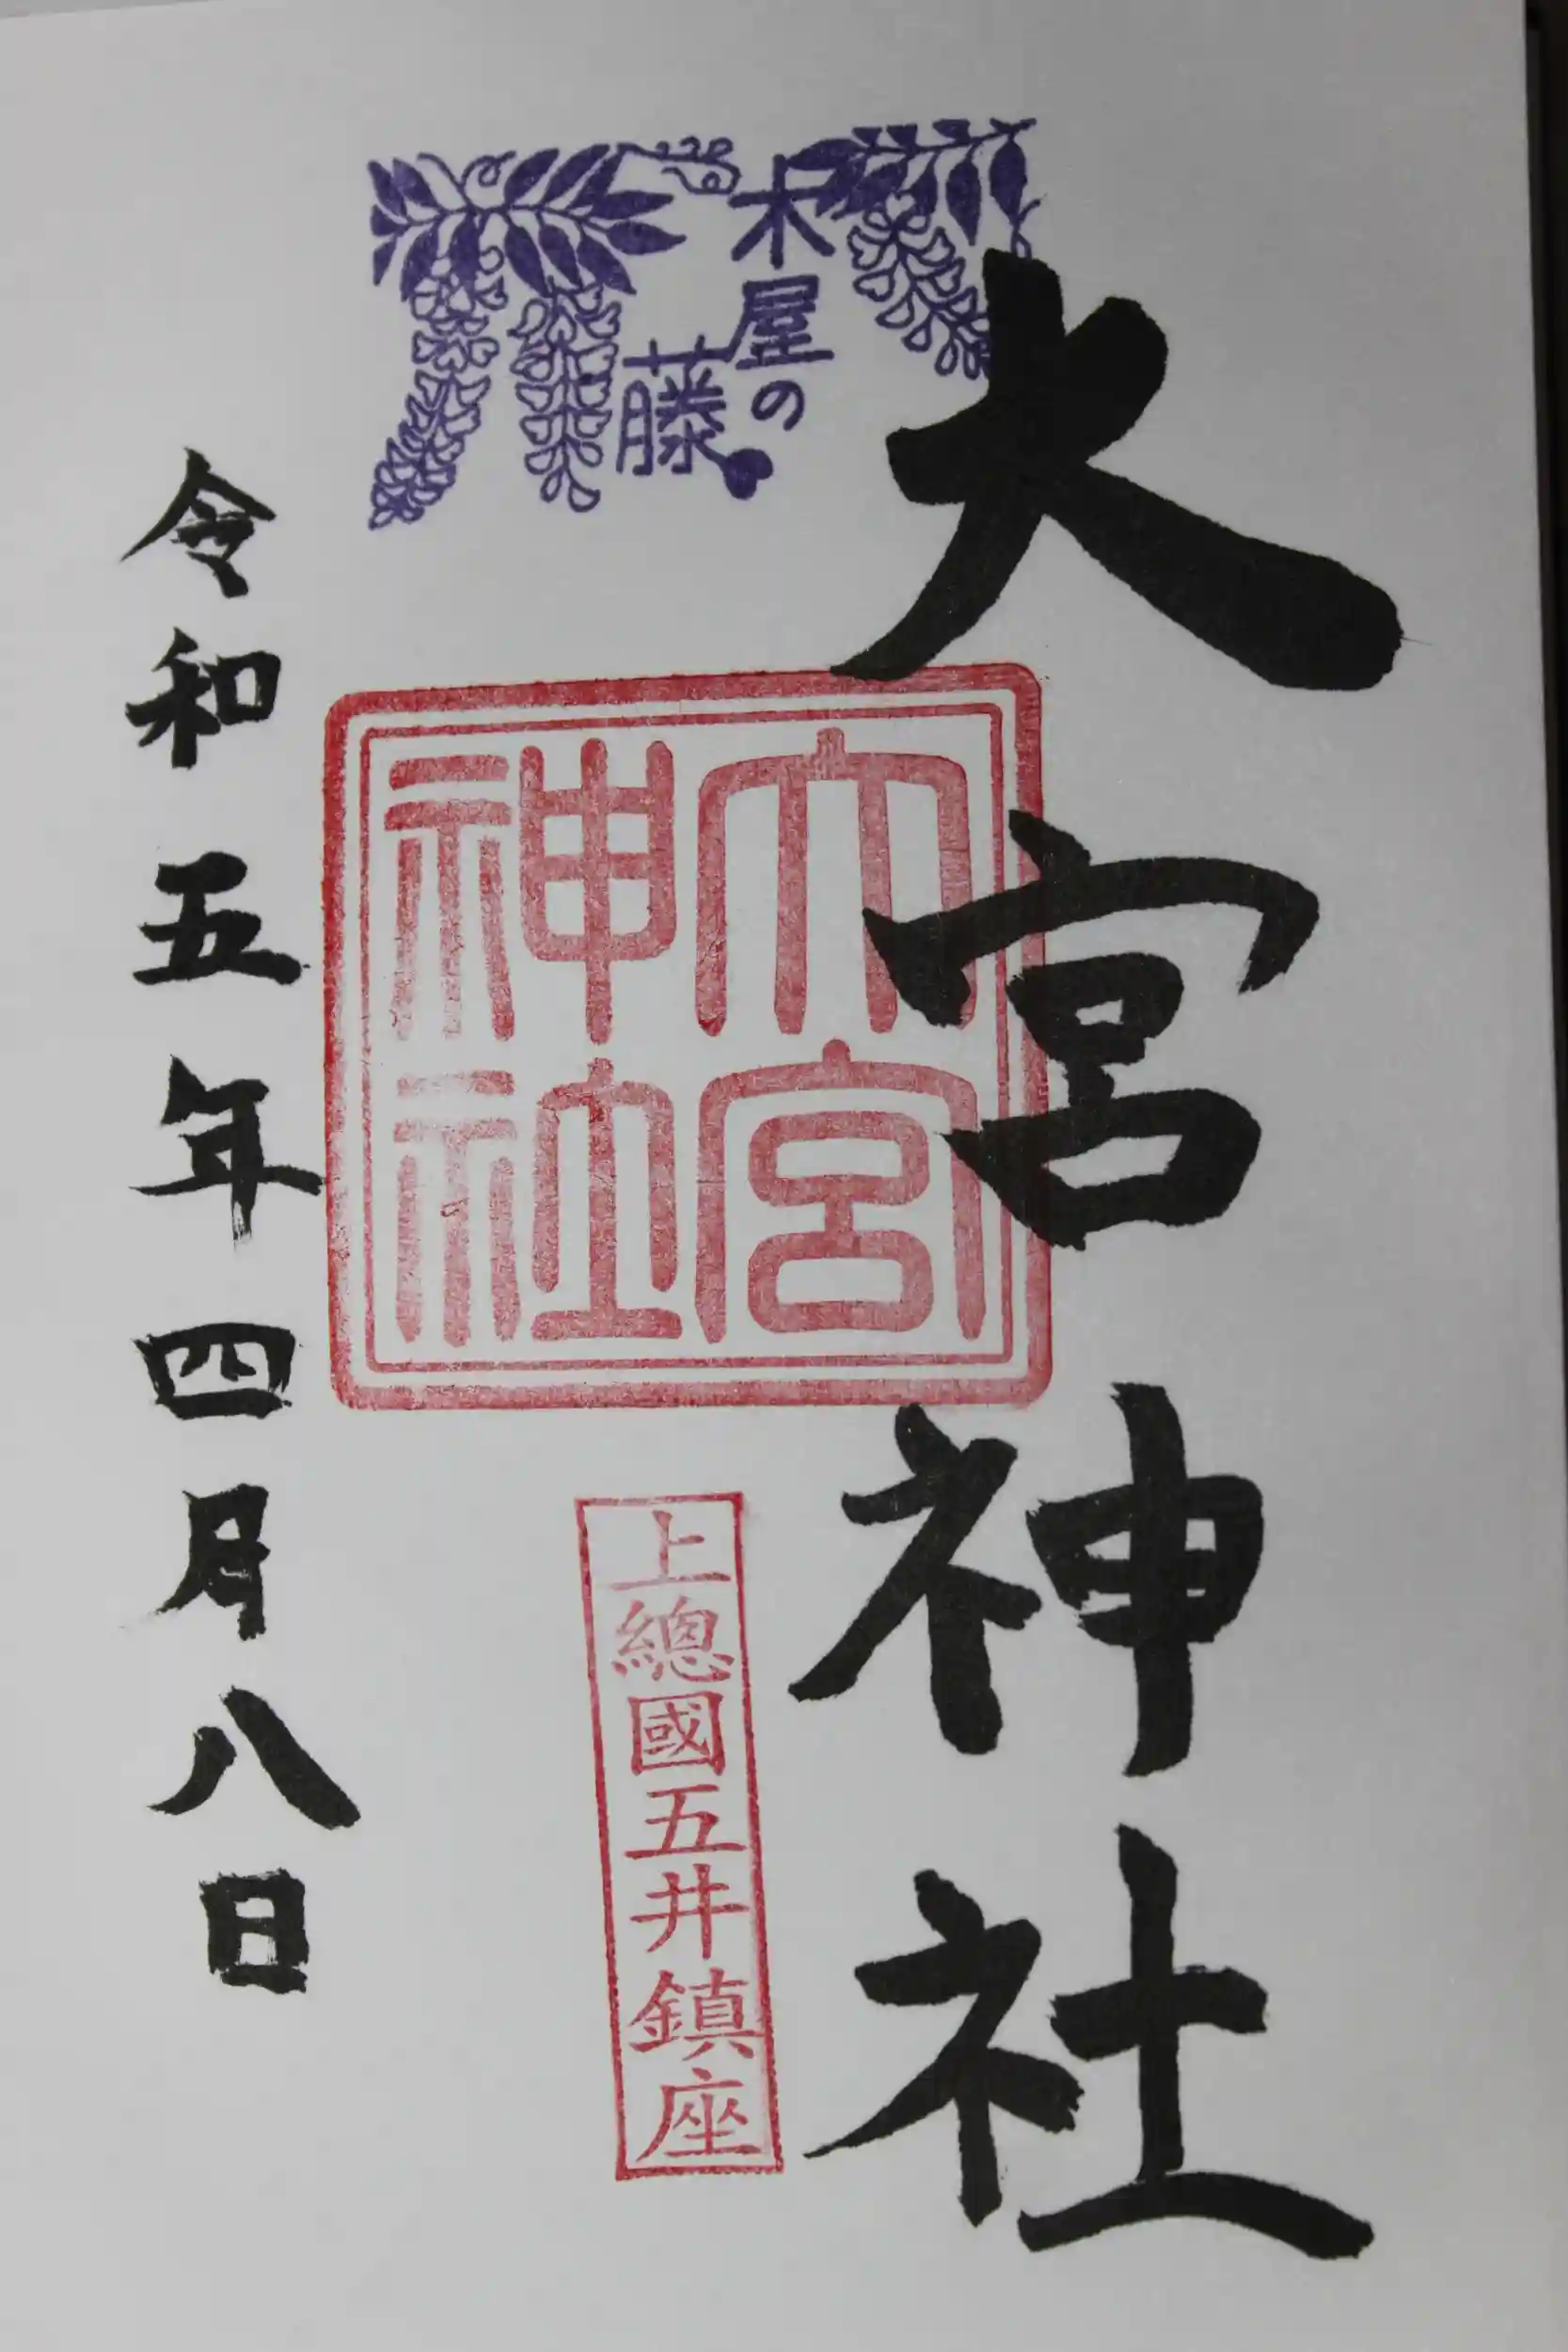 大宮神社
木屋の
藤
大宮
神社
上總國五井鎮座
令和五年四月八日